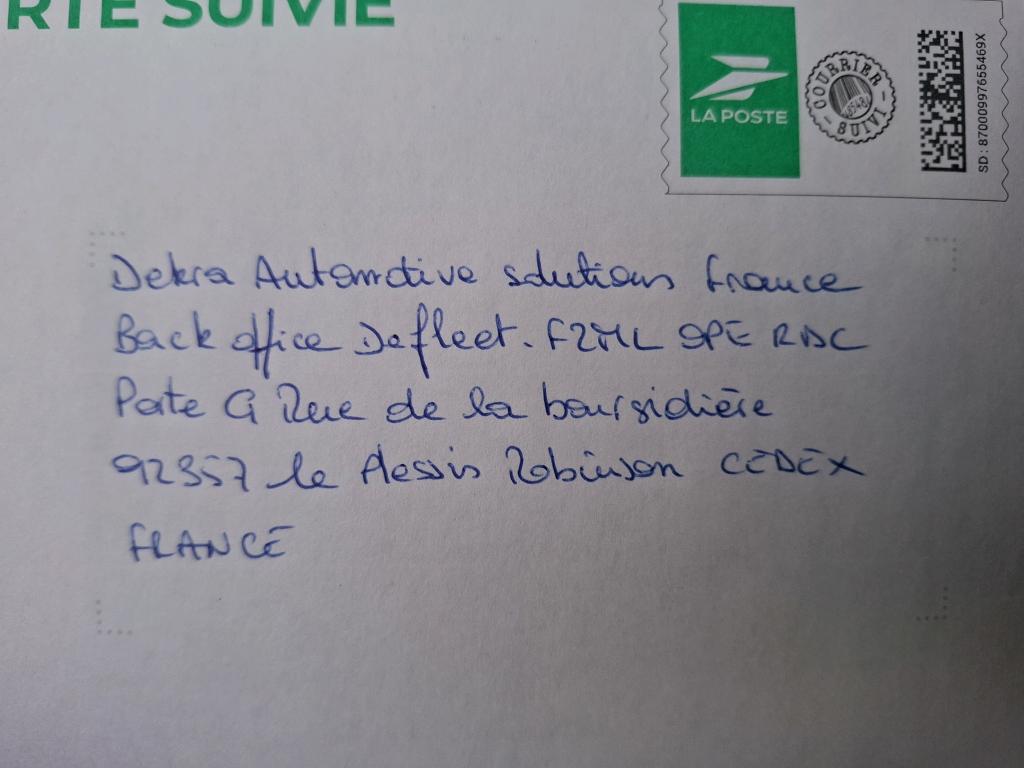 RTE SUIVIE
LA POSTE
COURRIER
SUIVI
SD : 87000997655469X
Dekra Automotive solutions france
Back office Defleet. F2ML OPE RDC
Porte G Rue de la boursidière
92357 le Plessis Robinson CEDEX
FRANCE